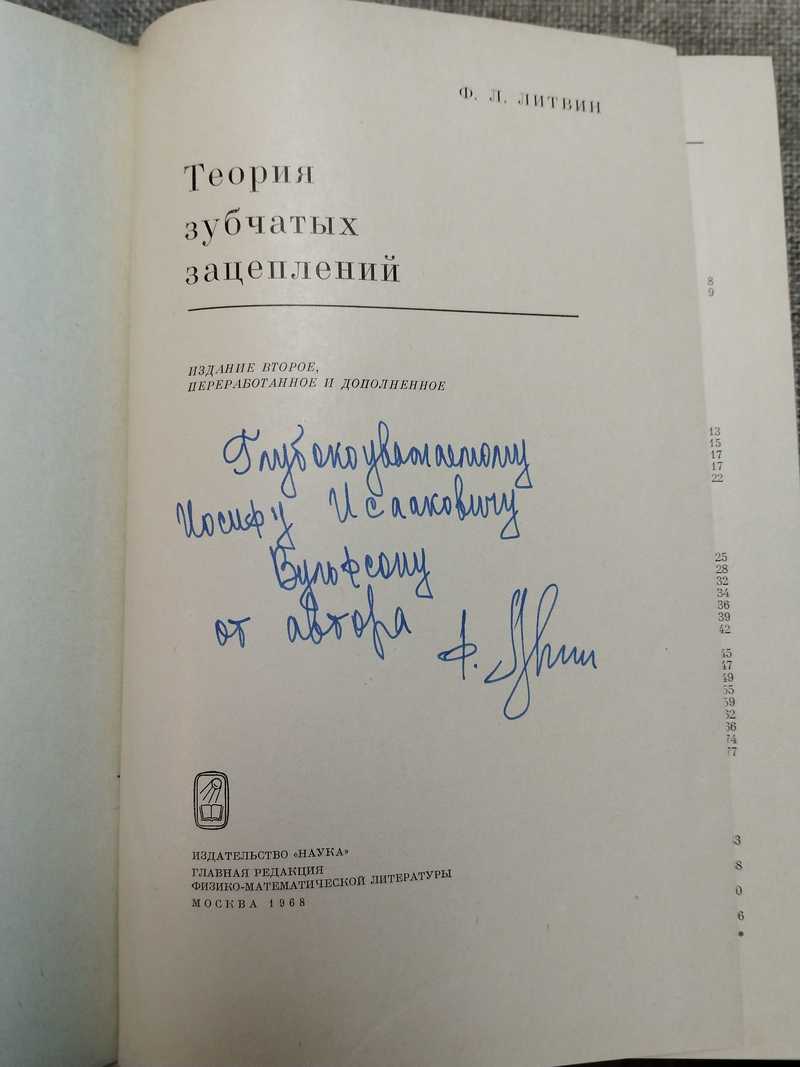 Ф. Л. ЛИТВИН
Теория
зубчатых
зацеплений
ИЗДАНИЕ ВТОРОЕ,
ПЕРЕРАБОТАННОЕ И ДОПОЛНЕННОЕ
Глубокоуважаемому
Иосифу Исааковичу
Вульфсону
от автора Ф.
ИЗДАТЕЛЬСТВО «НАУКА»
ГЛАВНАЯ РЕДАКЦИЯ
ФИЗИКО-МАТЕМАТИЧЕСКОЙ ЛИТЕРАТУРЫ
МОСКВА 1968
8
9
13
15
17
17
22
25
28
32
34
36
39
42